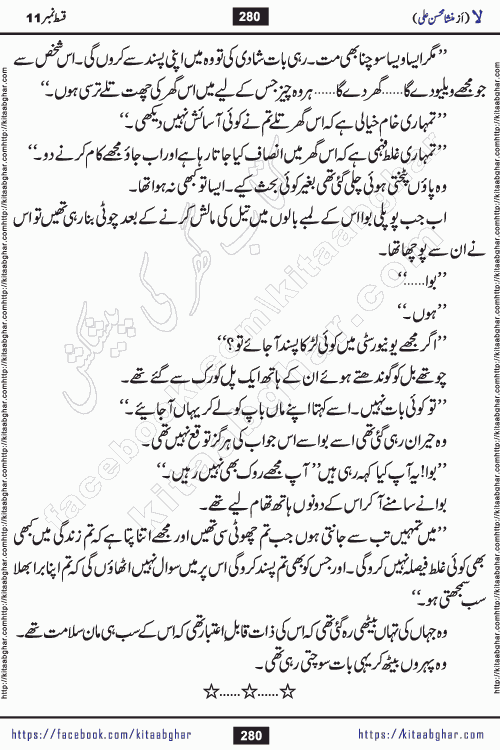 لا (از منشا محسن علی) 280 قسط نمبر 11
’’مگر ایسا ویسا سوچنا بھی مت۔ رہی بات شادی کی تو وہ میں اپنی پسند سے کروں گی۔ اس شخص سے
جو مجھے ویلیو دے گا......گھر دے گا......ہر وہ چیز جس کے لیے میں اس گھر کی چھت تلے ترسی ہوں۔‘‘
’’تمہاری خام خیالی ہے کہ اس گھر تلے تم نے کوئی آسائش نہیں دیکھی۔‘‘
’’تمہاری غلط فہمی ہے کہ اس گھر میں انصاف کیا جاتا رہا ہے اور اب جاؤ مجھے کام کرنے دو۔‘‘
وہ پاؤں پٹختی ہوئی چلی گئی تھی بغیر کوئی بحث کیے۔ ایسا تو کبھی نہ ہوا تھا۔
اب جب پوپلی بوا اس کے لمبے بالوں میں تیل کی مالش کرنے کے بعد چوٹی بنا رہی تھیں تو اس
نے ان سے پوچھا تھا۔
’’بوا......‘‘
’’ہوں۔‘‘
’’اگر مجھے یونیورسٹی میں کوئی لڑکا پسند آ جائے تو؟‘‘
چوتھے بل کو گوندھتے ہوئے ان کے ہاتھ ایک پل کو رک سے گئے تھے۔
’’تو کوئی بات نہیں۔ اسے کہنا اپنے ماں باپ کو لے کر یہاں آ جائیے۔‘‘
وہ حیران رہی گئی تھی اسے بوا سے اس جواب کی ہرگز توقع نہیں تھی۔
’’بوا! یہ آپ کیا کہہ رہی ہیں‘‘ آپ مجھے روک بھی نہیں رہیں۔‘‘
بوا نے سامنے آ کر اس کے دونوں ہاتھ تھام لیے تھے۔
’’میں تمہیں تب سے جانتی ہوں جب تم چھوٹی سی تھیں اور مجھے اتنا پتا ہے کہ تم زندگی میں کبھی
بھی کوئی غلط فیصلہ نہیں کرو گی۔ اور جس کو بھی تم پسند کرو گی اس پر میں سوال نہیں اٹھاؤں گی کہ تم اپنا برا بھلا
سب سمجھتی ہو۔‘‘
وہ جہاں کی تہاں بیٹھی رہ گئی تھی کہ اس کی ذات قابلِ اعتبار تھی کہ اس کے سب ہی مان سلامت تھے۔
وہ پہروں بیٹھ کر یہی بات سوچتی رہی تھی۔
☆......☆......☆
https://facebook.com/kitaabghar 280 https://kitaabghar.com
http://kitaabghar.com
کتاب گھر کی پیشکش
kitaabghar.com
facebook.com/kitaabghar